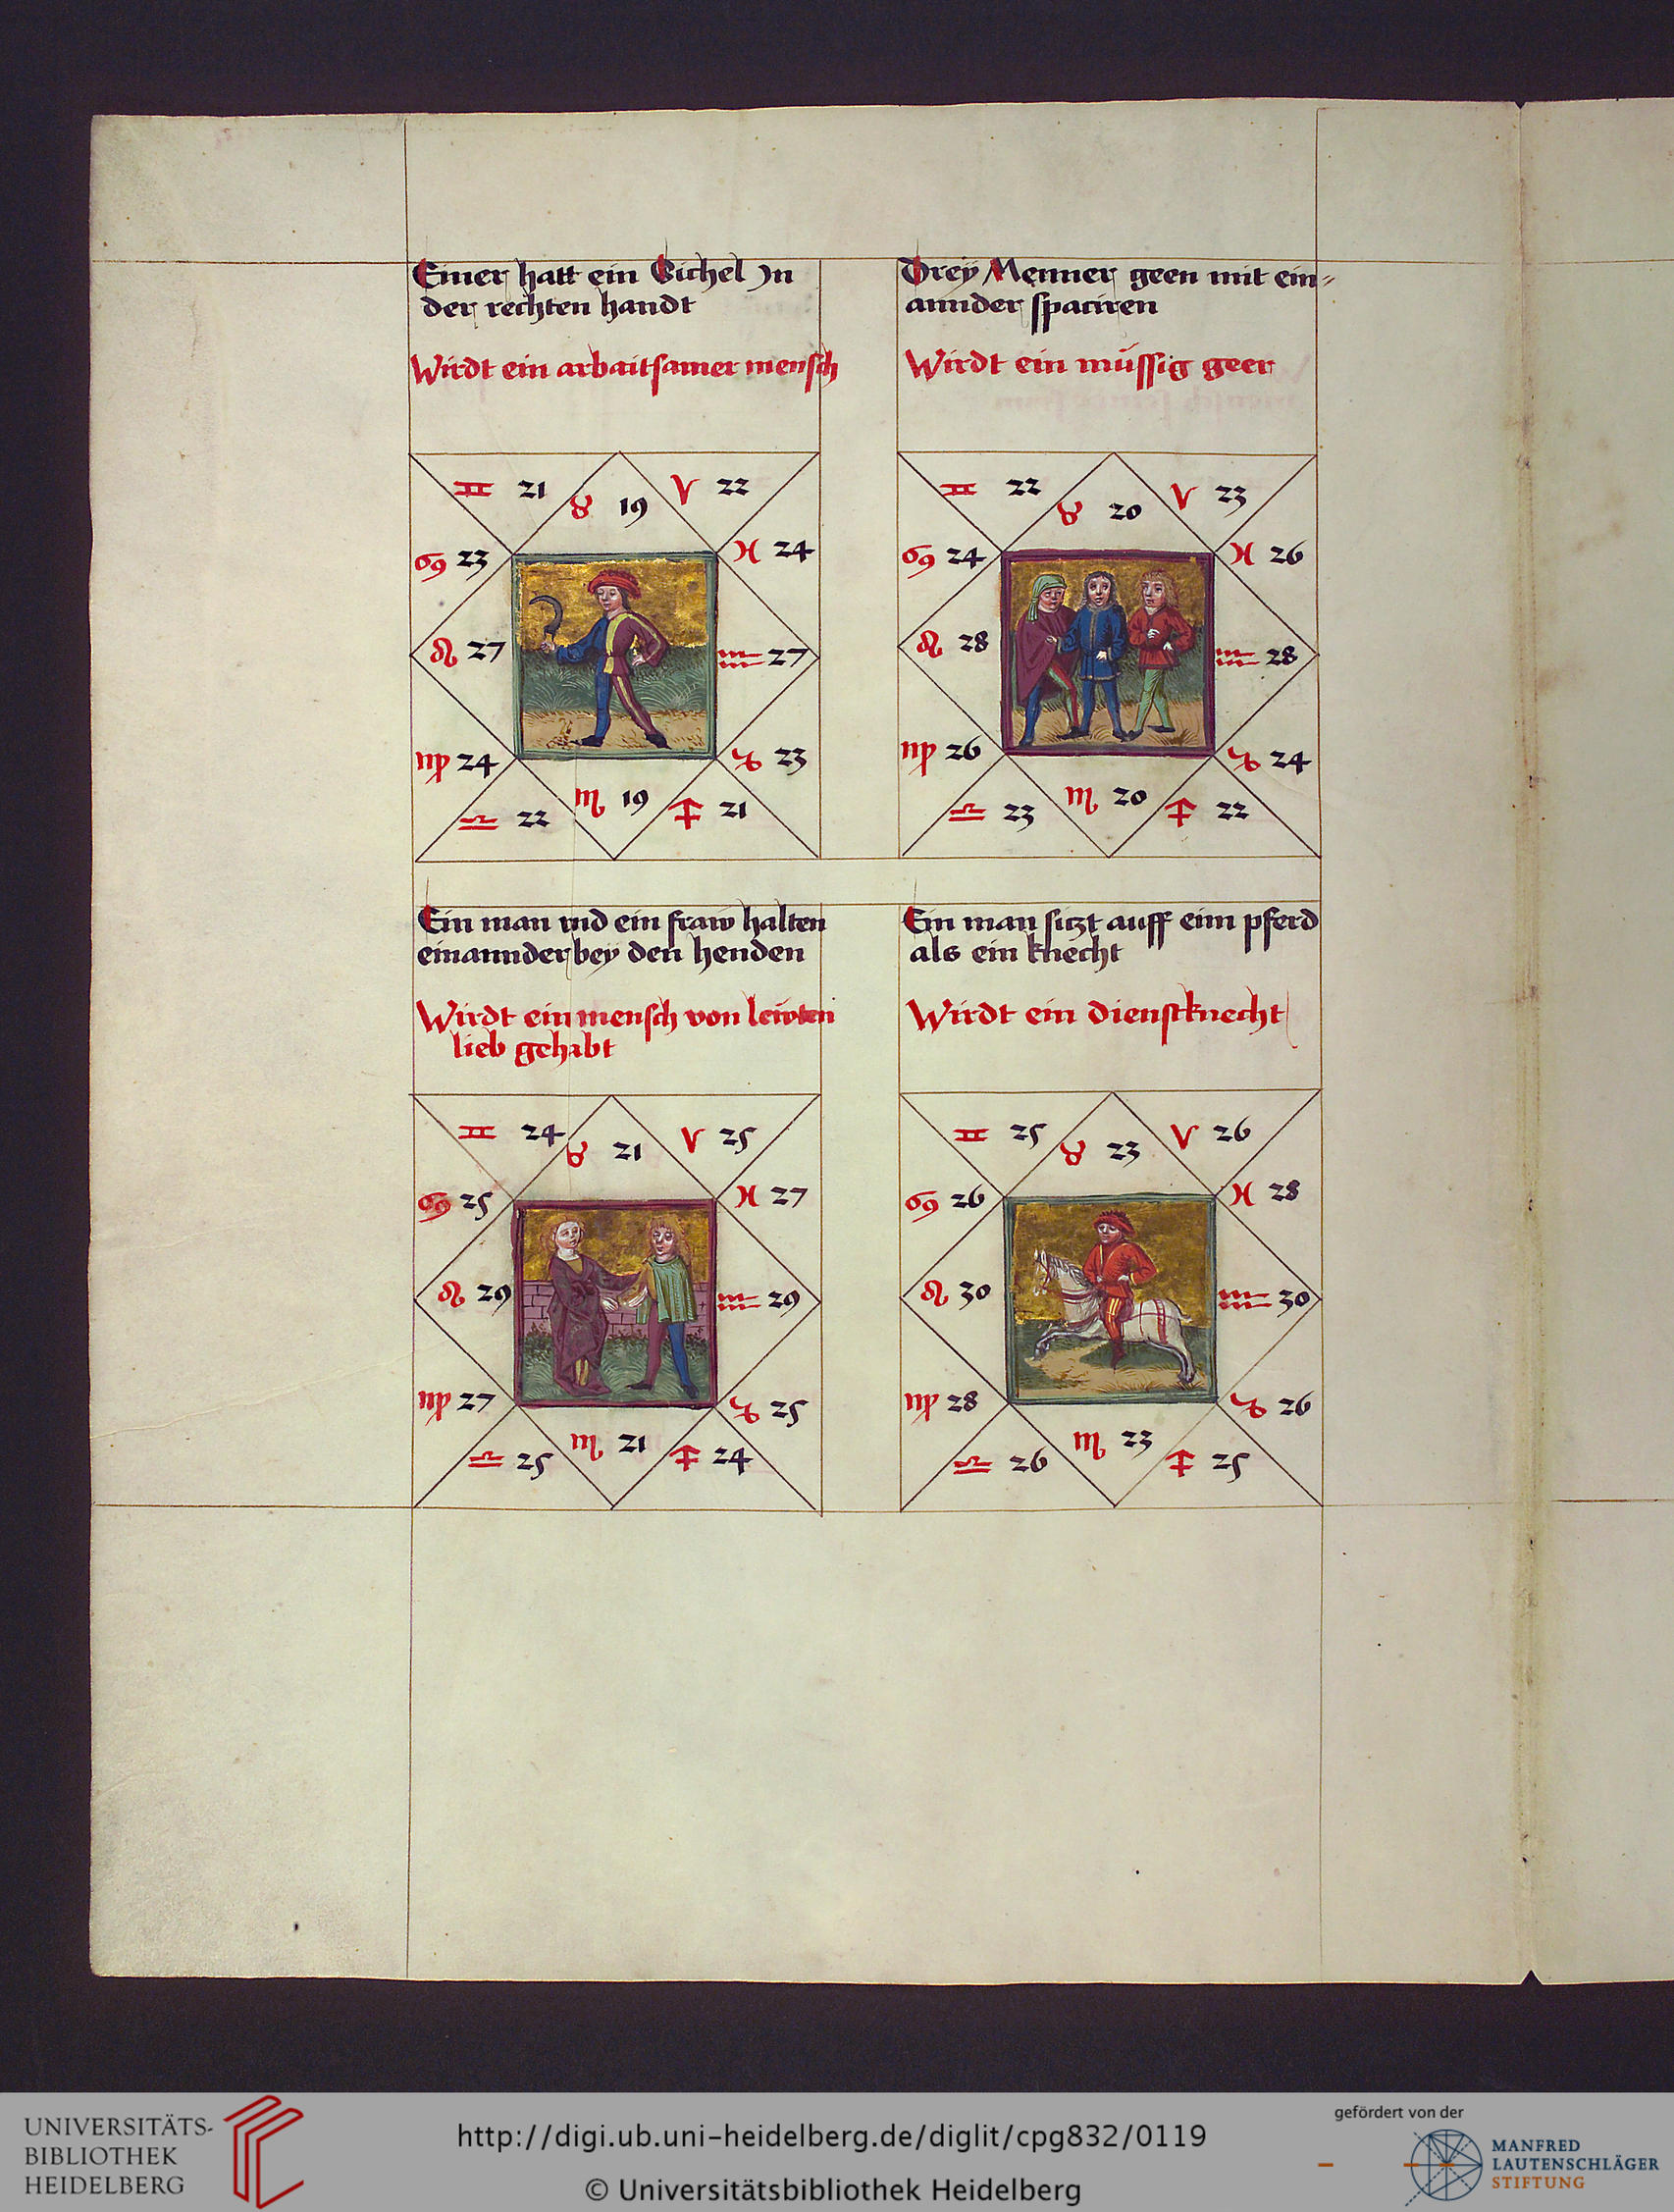 Einer hatt ein Sichel Jn
der rechten handt
Wirdt ein arbaitsamer mensch
♊ 21
♉ 19
♈ 22
♋ 23
♓ 24
♌ 27
♒ 27
♍ 24
♑ 23
♎ 22
♏ 19
♐ 21
Drey Menner geen mit ein-
annder spaciren
Wirdt ein müssig geer
♊ 22
♉ 20
♈ 23
♋ 24
♓ 26
♌ 28
♒ 28
♍ 26
♑ 24
♎ 23
♏ 20
♐ 22
Ein man vnd ein fraw halten
einannder bey den henden
Wirdt ein mensch von lewten
lieb gehabt
♊ 24
♉ 21
♈ 25
♋ 25
♓ 27
♌ 29
♒ 29
♍ 27
♑ 25
♎ 25
♏ 21
♐ 24
Ein man sitzt auff eim pferd
als ein knecht
Wirdt ein dienstknecht
♊ 25
♉ 23
♈ 26
♋ 26
♓ 28
♌ 30
♒ 30
♍ 28
♑ 26
♎ 26
♏ 23
♐ 25
UNIVERSITÄTS-
BIBLIOTHEK
HEIDELBERG
http://digi.ub.uni-heidelberg.de/diglit/cpg832/0119
© Universitätsbibliothek Heidelberg
gefördert von der
MANFRED
LAUTENSCHLÄGER
STIFTUNG